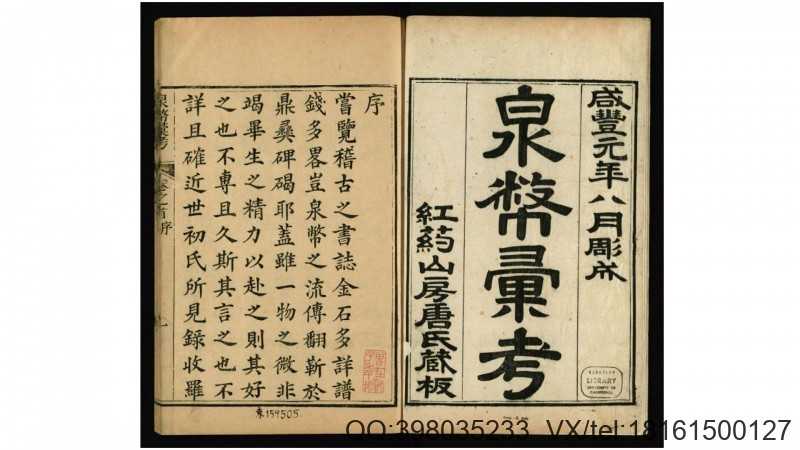 咸豐元年八月彫成
泉幣彙考
紅葯山房唐氏藏板
LIBRARY
序
嘗覽稽古之書誌金石多詳譜
錢多畧豈泉幣之流傳翻靳於
鼎彝碑碣耶蓋雖一物之微非
竭畢生之精力以赴之則其好
之也不專且久斯其言之也不
詳且確近世初氏所見錄收羅
泉幣彙考
卷之首序
QQ:398035233 VX/tel:18161500127